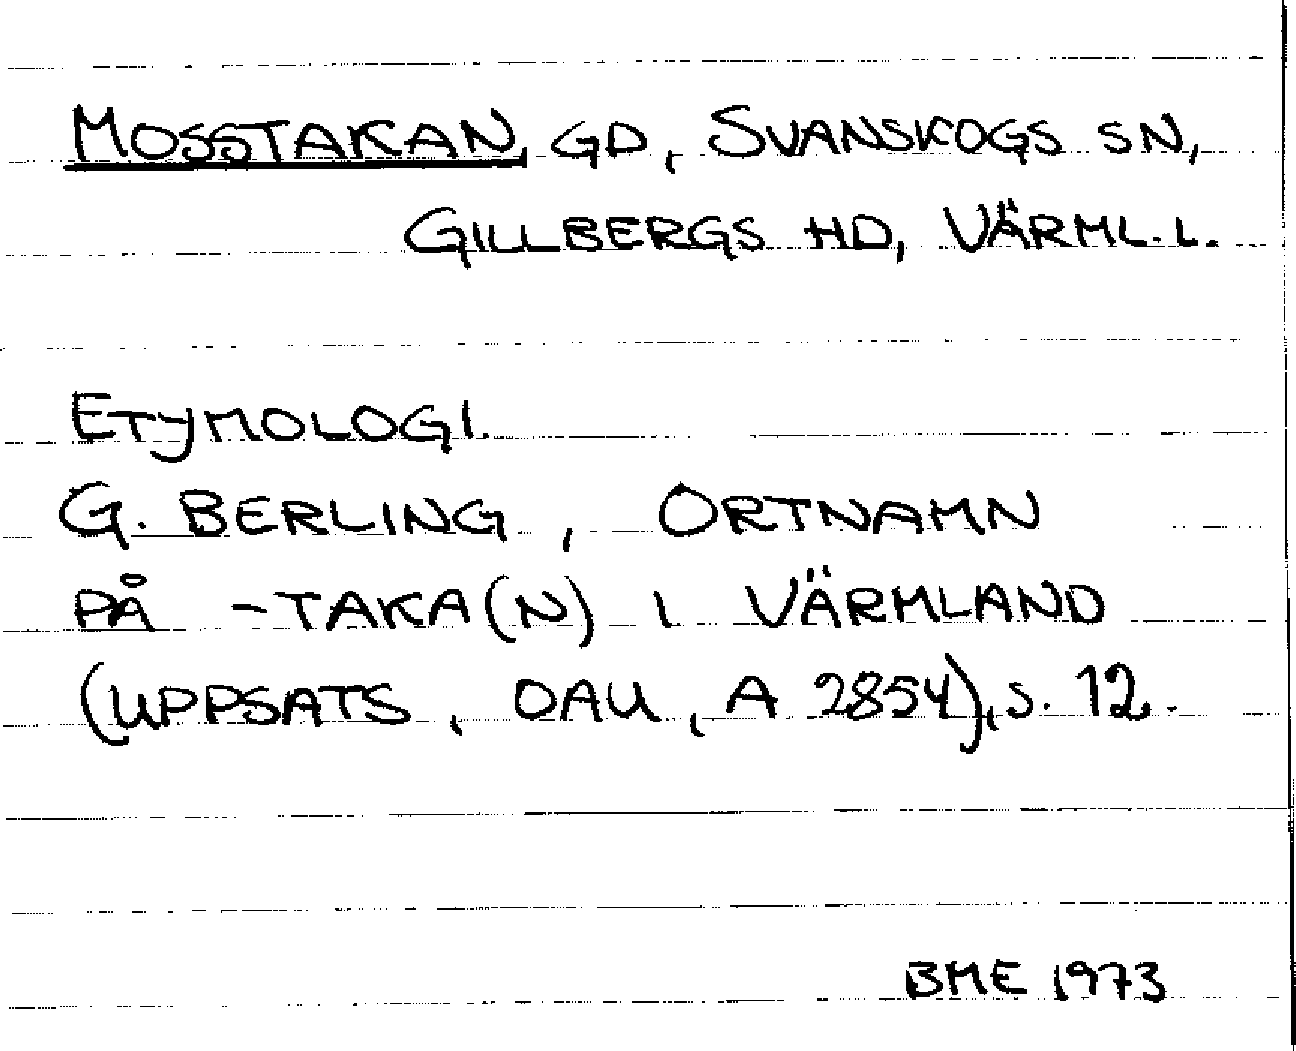 MOSSTAKAN, GD, SVANSKOGS SN,
GILLBERGS HD, VÄRML. L.
ETYMOLOGI.
G. BERLING, ORTNAMN
PÅ -TAKA(N) I VÄRMLAND
(UPPSATS, OAU, A 2854), S. 12.
BME 1973